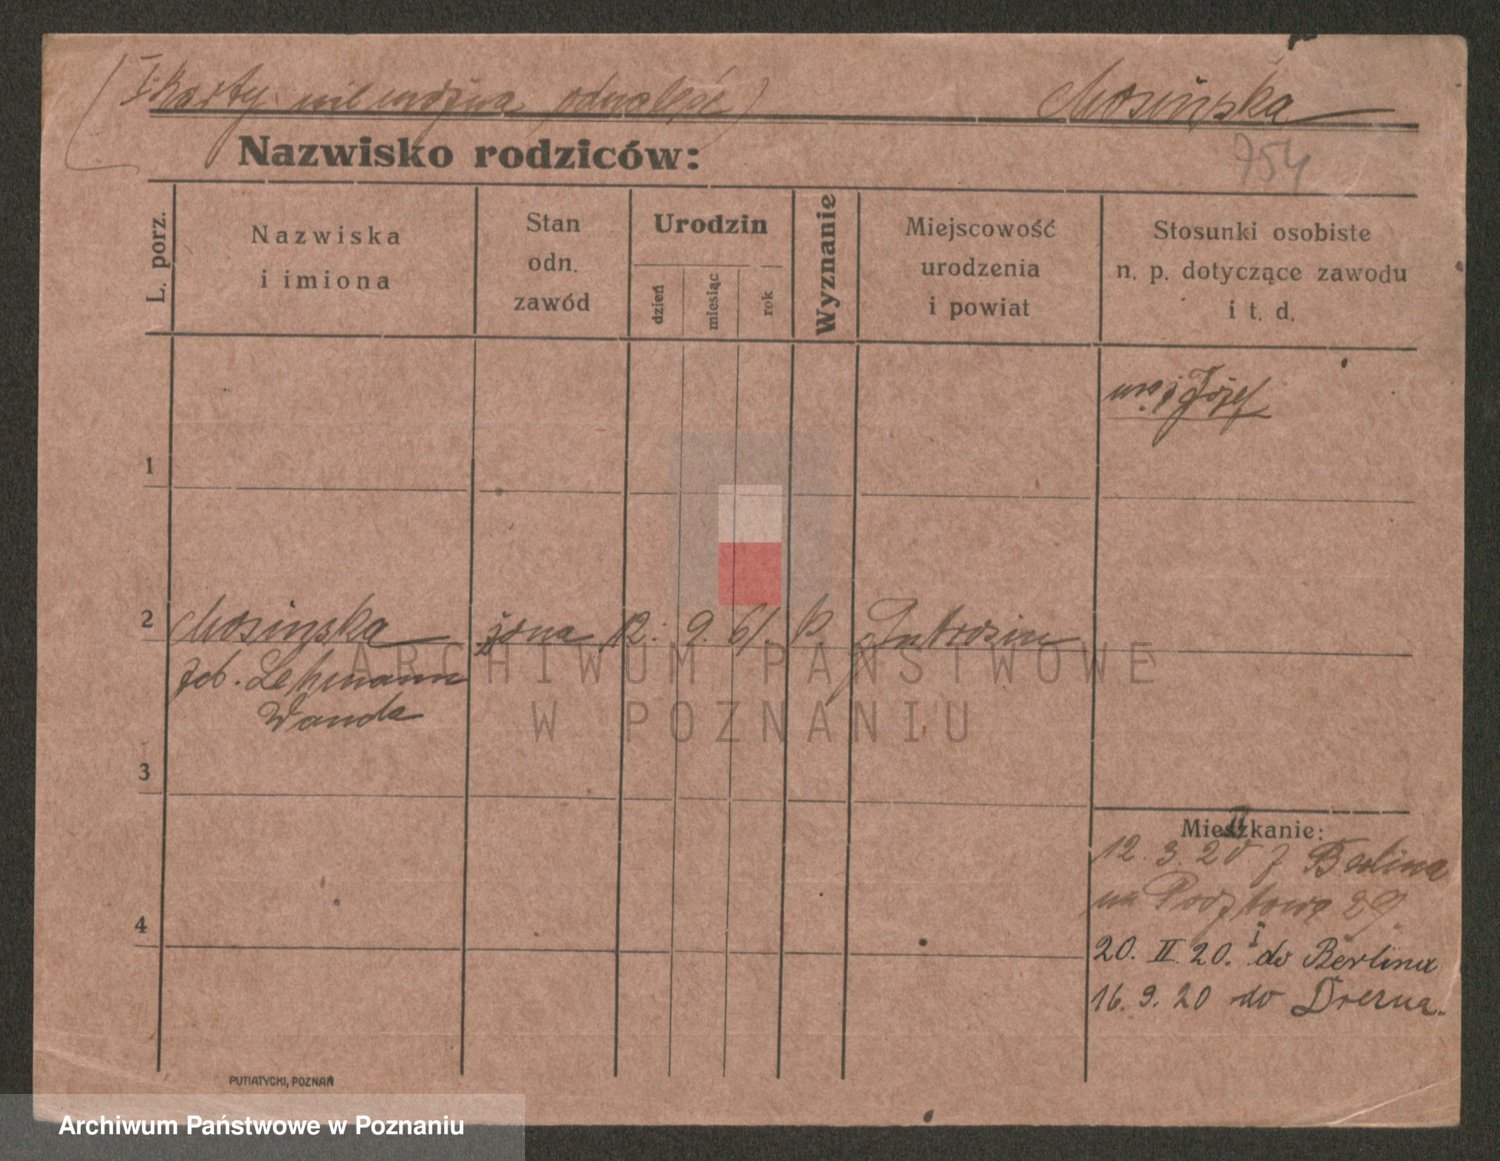 (I Karty nie można odnaleść) Mosińska
954
Nazwisko rodziców:
L. porz.
Nazwiska
i imiona
Stan
odn.
zawód
Urodzin
dzień
miesiąc
rok
Wyznanie
Miejscowość
urodzenia
i powiat
Stosunki osobiste
n. p. dotyczące zawodu
i t. d.
mąż Józef
1
2
Mosińska żona 12. 9. 61. k. Jutrosin
zeb. Lehmann
Wanda
ARCHIWUM PAŃSTWOWE
W POZNANIU
3
4
Mieszkanie:
12. 3. 20 z Berlina
na Pocztowa 29
20. II 20. do Berlina
16. 9. 20 do Drezna.
PUTIATYCKI, POZNAŃ
Archiwum Państwowe w Poznaniu